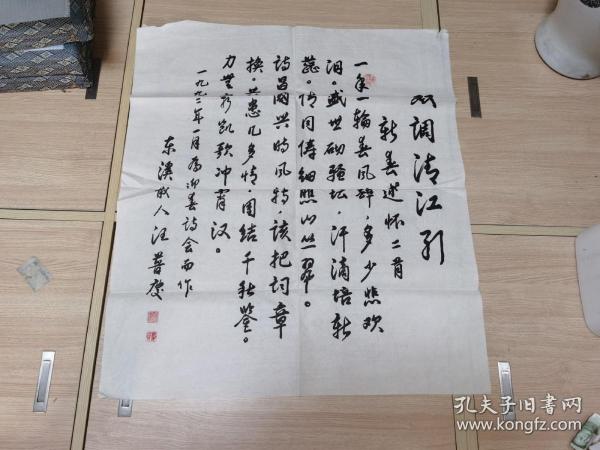 双调清江引
新春述怀二首
一年一轮春风醉，多少悲欢
泪。盛世砌骚坛，汗滴培新
蕊。情同俦细照心丝翠。
诗昌国兴时风转，该把词章
换。共患几多情，团结千秋鉴。
力无穷凯歌冲霄汉。
一九九二年一月为迎春诗会而作
东溪成人汪
孔夫子旧书网
www.kongfz.com